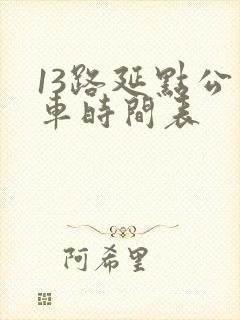 13路延點公
車時間表
阿希里